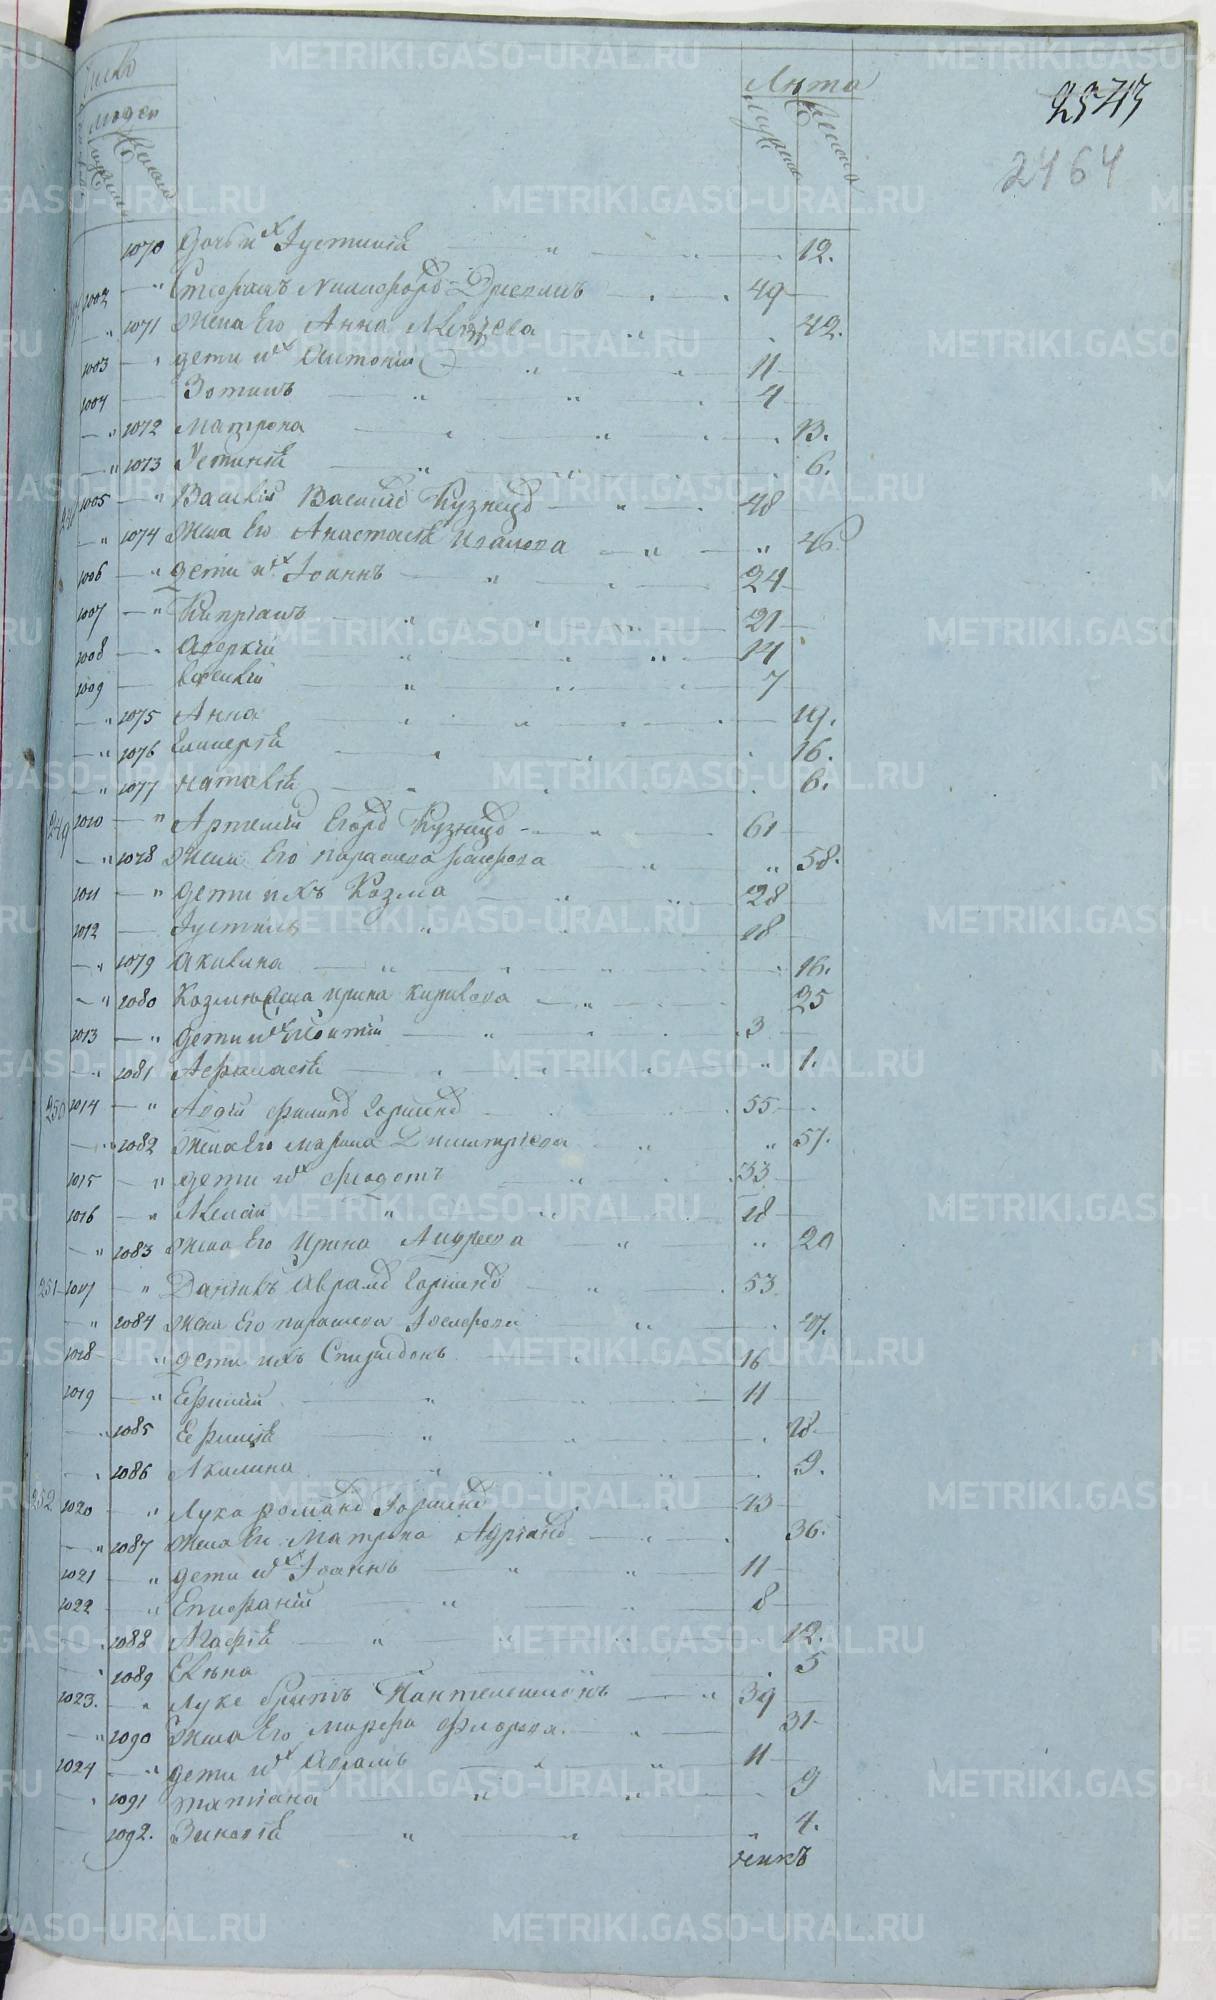 Число
людей
Лета
мужеска
женска
мужеска
женска
2464
1070 Дочь их Іустинія 12.
1002 Стефанъ Никифоровъ 49
1071 Жена Его Анна 42.
1003 дети их Антоній 11
1004 Зотикъ 4
1072 Матрона 13.
1073 Устинія 6.
1005 Василій Василіевъ Кузнецовъ 48
1074 Жена Его Анастасія Иванова 46
1006 дети их Іоаннъ 24
1007 Кипріанъ 21
1008 Аверкій 14
1009 7
1075 Анна 19.
1076 Гликерія 16.
1077 Наталія 6.
249 1010 Артемій Егоровъ Кузнецовъ 61
1078 Жена Его парасковья 58.
1011 дети ихъ Козма 28
1012 Іустинъ 18
1079 Акилина 16.
1080 Козмы жена Ирина Кирилова 25
1013 дети их 3
1081 Афанасія 1.
250 1014 Авдій филиповъ Горшковъ 55
1082 Жена Его Марина Димитріева 57.
1015 дети их федотъ 33
1016 Алексій 18
1083 Жена Его Ирина Андреева 20
251 1017 Даніилъ Аврамовъ Горшковъ 53
1084 Жена Его параскева 47.
1018 дети ихъ Спиридонъ 16
1019 Ефимій 11
1085 Ефимія 18.
1086 Акилина 9.
252 1020 Лука романовъ Горшковъ 43
1087 Жена Ег Матрона Адріановъ 36.
1021 дети их Іоаннъ 11
1022 Епифаній 8
1088 Агафія 12.
1089 Елена 5
1023. Луке братъ Пантелеимонъ 39
1090 Жена Его Марфа Флорова. 31
1024 дети их Аврамъ 11
1091 татіана 9
1092. Зиновія 4.